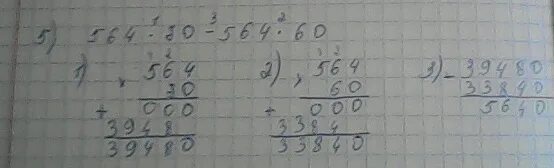 5) 564 · 70 - 564 · 60
1 3 2
1) × 564
70
+ 000
3948
39480
2) × 564
60
+ 000
3384
33840
3) - 39480
33840
5640